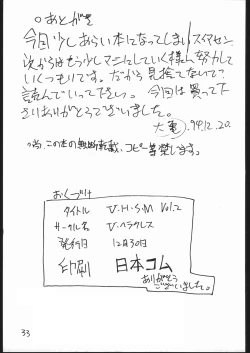 ○あとがき
今回少しあらい本になってしまいスイマセン
次からはもう少しマシにしていく様に努力して
いくつもりです。だから見捨てないで?
読んでいって下さい。今回は買って下
さりありがとうございました。
'94.12.20.
尚、この本の無断転載、コピー等禁じます。
おくづけ
タイトル V・H・S・M Vol.2
サークル名 V・ヘラクレス
発行日 12月30日
印刷 日本コム
ありがとう
ございました。
33